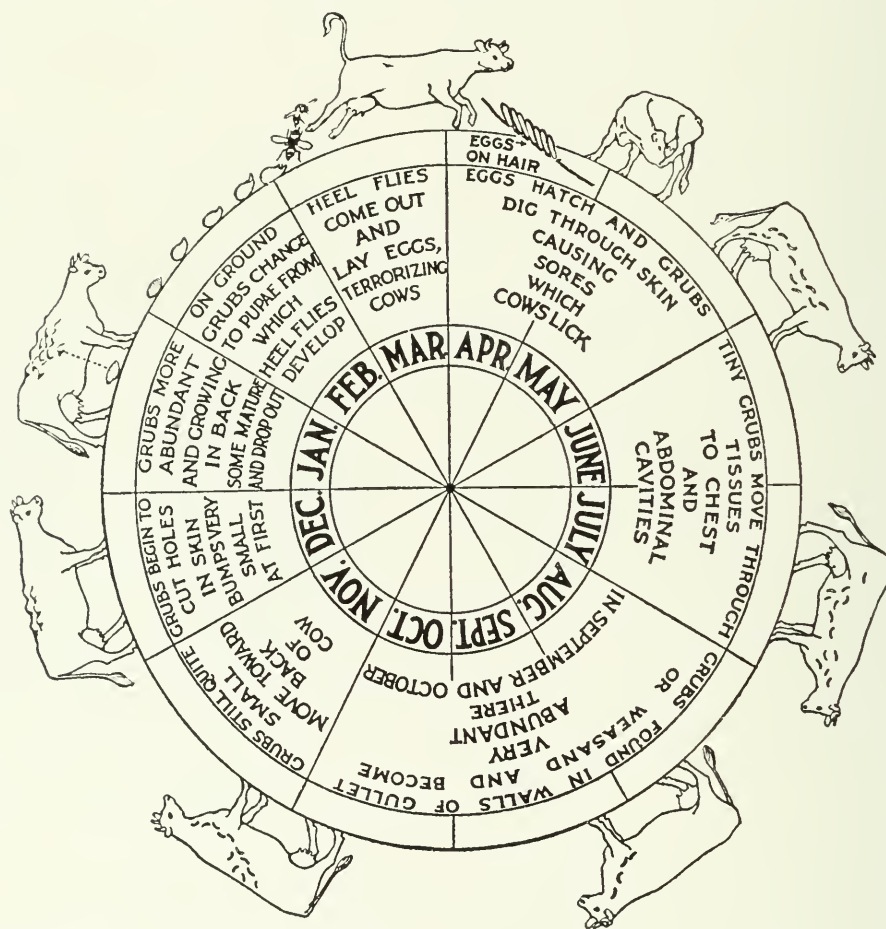 EGGS→
ON HAIR
HEEL FLIES
COME OUT
AND
LAY EGGS,
TERRORIZING
COWS
EGGS HATCH AND GRUBS
DIG THROUGH SKIN
CAUSING
SORES
WHICH
COWS LICK
TINY GRUBS MOVE THROUGH
TISSUES
TO CHEST
AND
ABDOMINAL
CAVITIES
GRUBS FOUND IN WALLS OF GULLET
OR WEASAND AND BECOME
VERY
ABUNDANT
THERE
IN SEPTEMBER AND OCTOBER
GRUBS STILL QUITE
SMALL
MOVE TOWARD
BACK
OF
COW
GRUBS BEGIN TO
CUT HOLES
IN SKIN
BUMPS VERY
SMALL
AT FIRST
GRUBS MORE
ABUNDANT
AND GROWING
IN BACK
SOME MATURE
AND DROP OUT
ON GROUND
GRUBS CHANGE
TO PUPAE FROM
WHICH
HEEL FLIES
DEVELOP
JAN. FEB. MAR. APR. MAY JUNE JULY AUG. SEPT. OCT. NOV. DEC.